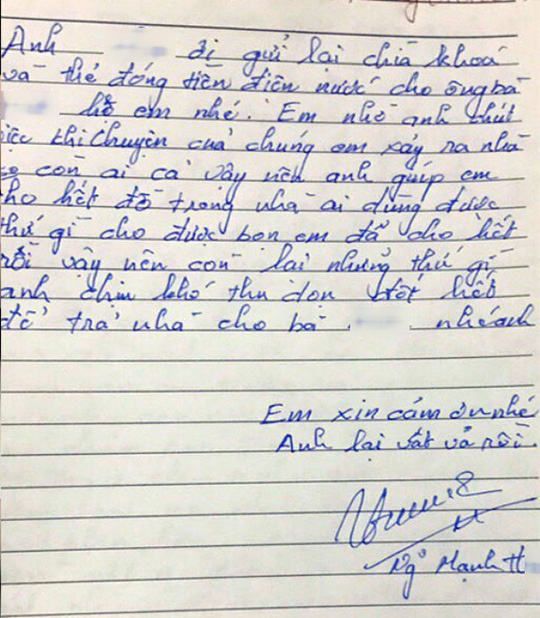 Anh đi gửi lại chìa khoá
và thẻ đóng tiền điện nước cho ông bà
hộ em nhé. Em nhờ anh chút
việc thì chuyện của chúng em xảy ra nhà
còn ai cả vậy nên anh giúp em
cho hết đồ trong nhà ai dùng được
thứ gì cho được bọn em đã cho hết
rồi vậy nên còn lại những thứ gì
anh chịu khó thu dọn đốt hết
để trả nhà cho bà nhé anh
Em xin cám ơn nhé
Anh lại vất vả rồi.
Mạnh H